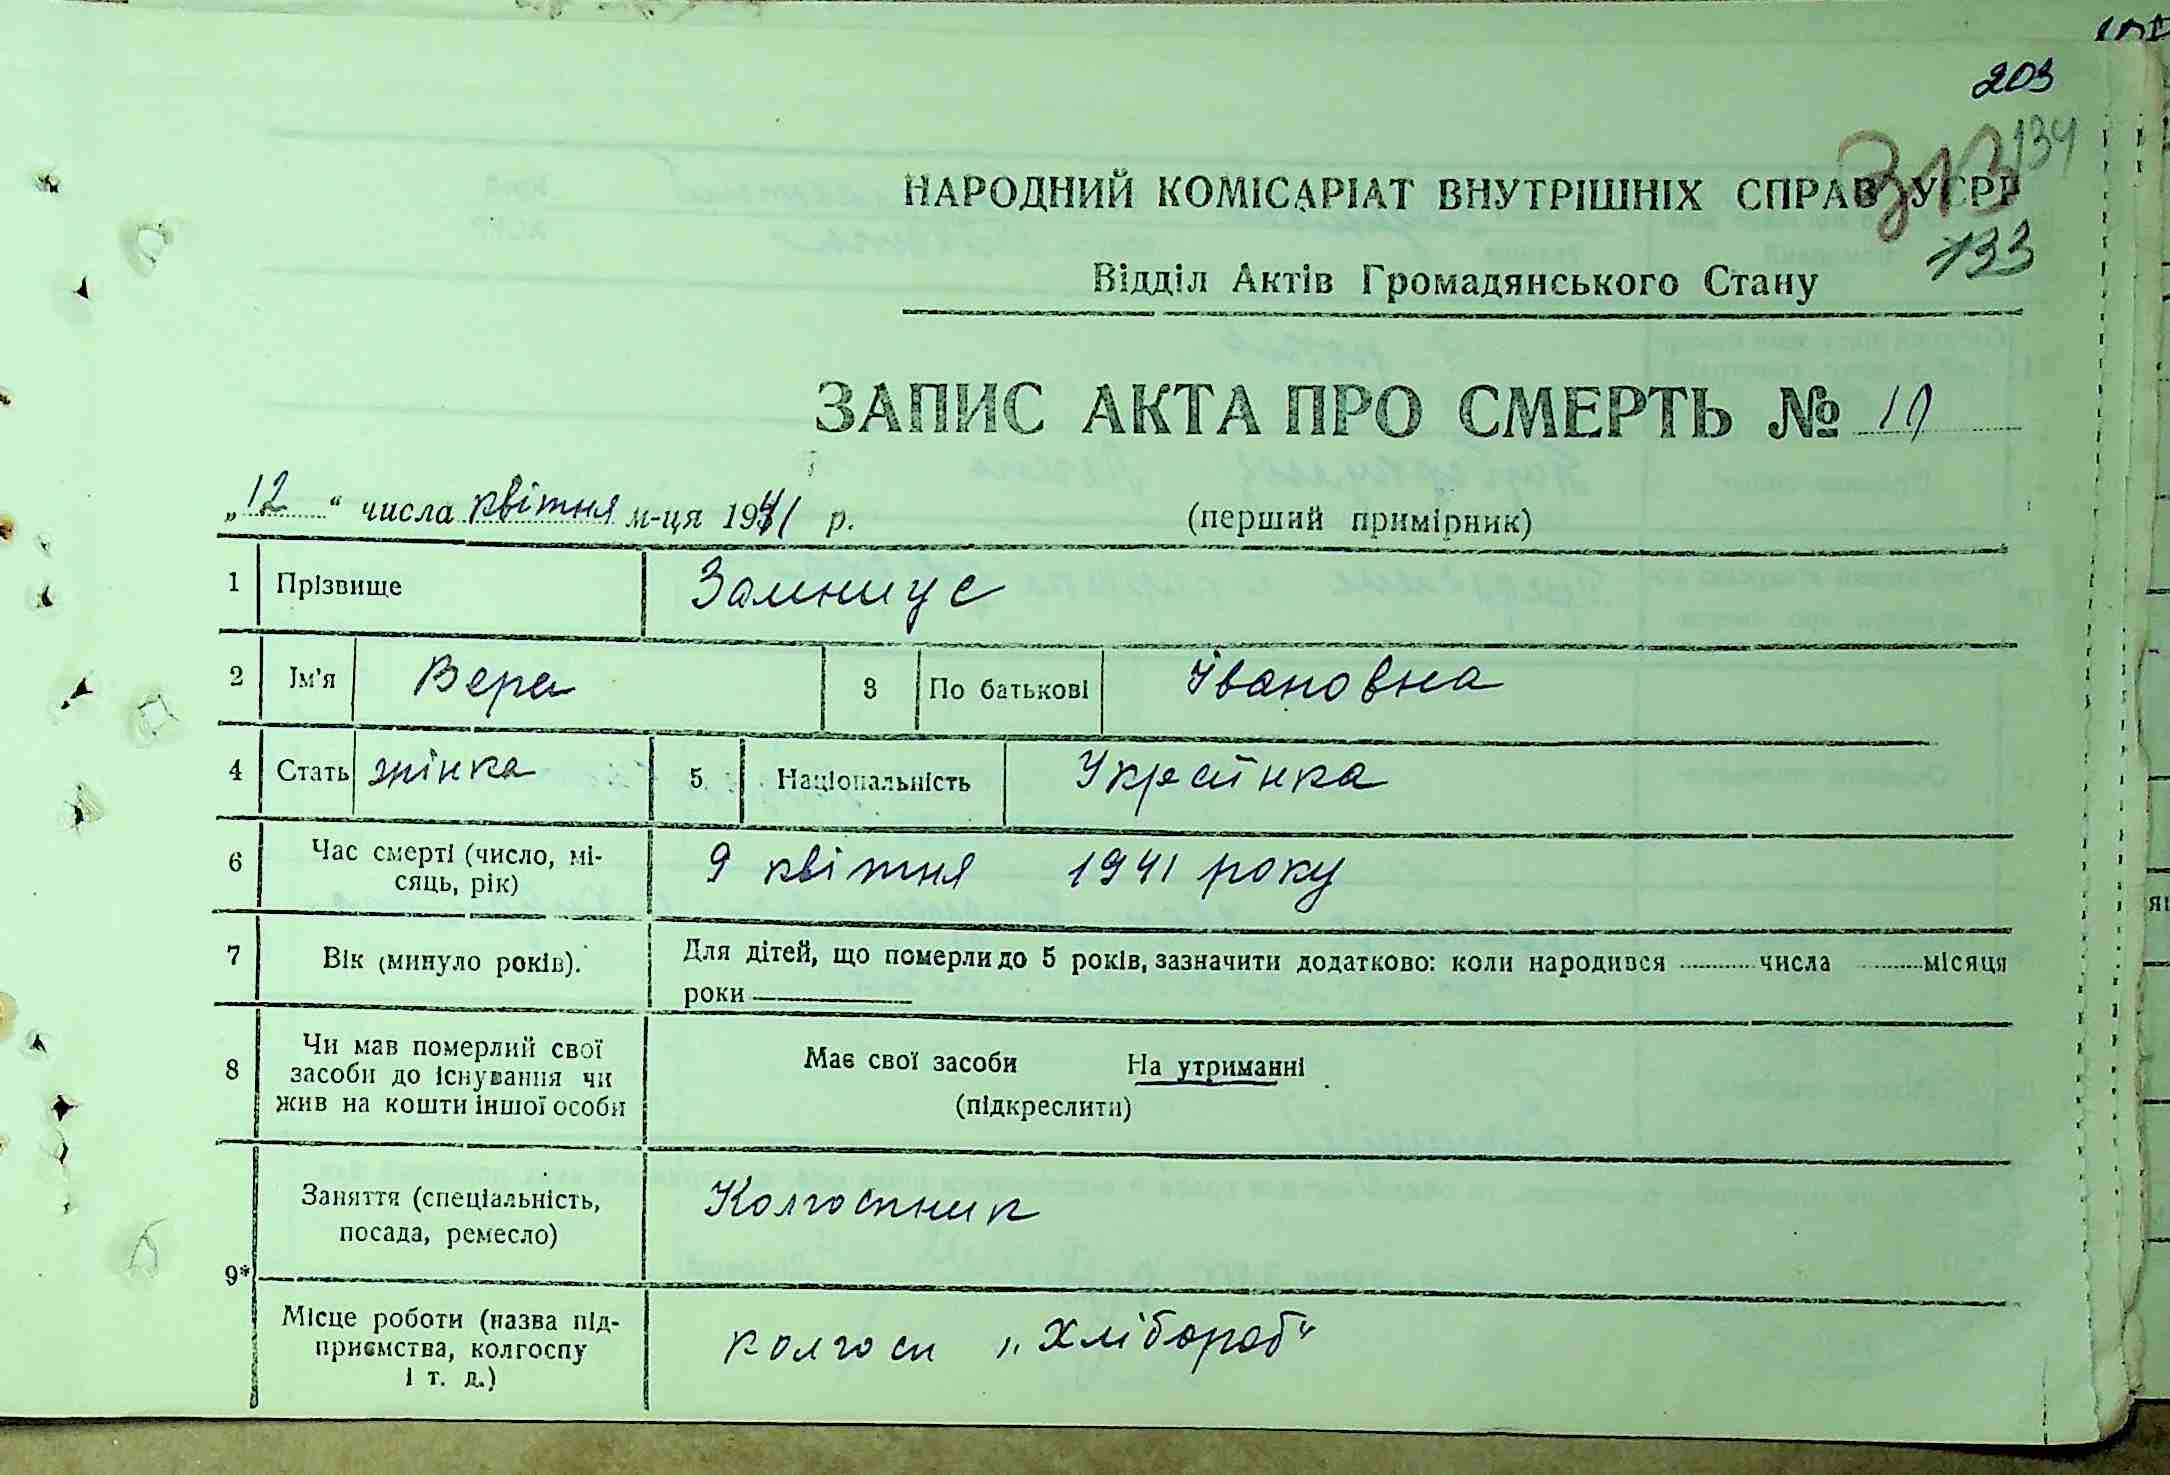 203
134
313
НАРОДНИЙ КОМІСАРІАТ ВНУТРІШНІХ СПРАВ УСРР
133
Відділ Актів Громадянського Стану
ЗАПИС АКТА ПРО СМЕРТЬ №
„12“ числа квітня м-ця 1941 р. (перший примірник)
1 Прізвище Замниус
2 Ім'я Вера 3 По батькові Івановна
4 Стать жінка 5 Національність Українка
6 Час смерті (число, мі-
сяць, рік) 9 квітня 1941 року
7 Вік (минуло років). Для дітей, що померли до 5 років, зазначити додатково: коли народився числа місяця
роки
8 Чи мав померлий свої
засоби до існування чи
жив на кошти іншої особи
Має свої засоби На утриманні
(підкреслити)
9* Заняття (спеціальність,
посада, ремесло) Колгоспник
Місце роботи (назва під-
приємства, колгоспу
і т. д.) колгосп „Хлібороб“